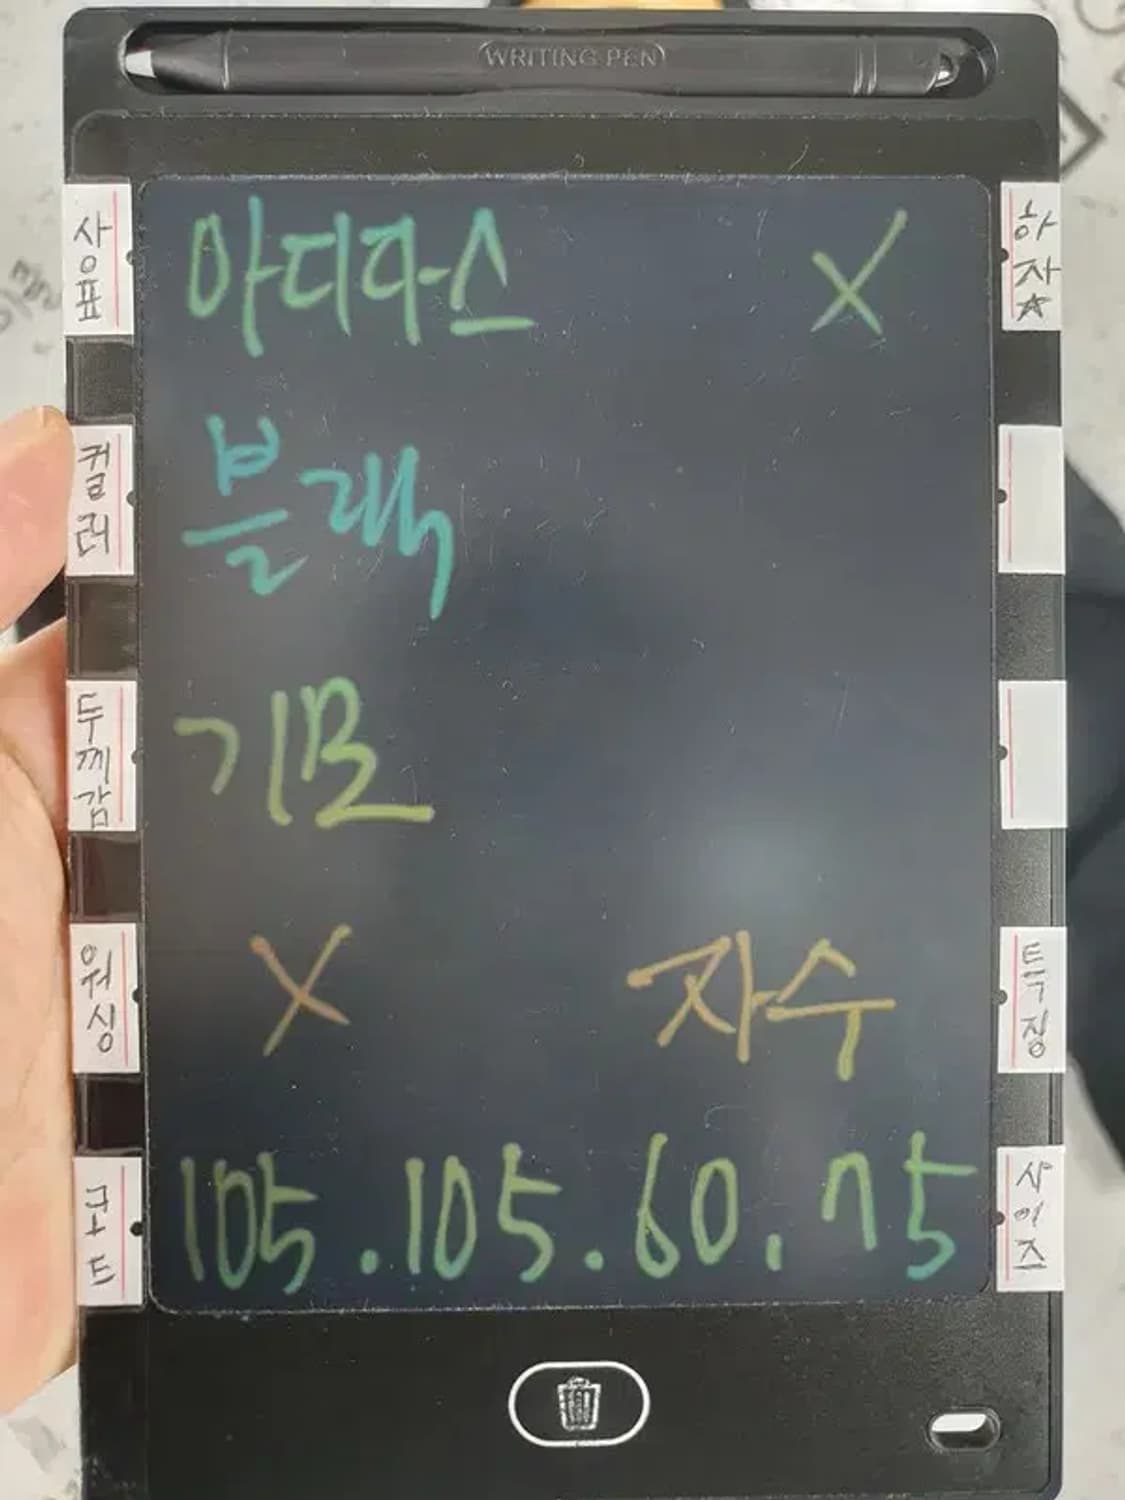 WRITING PEN
상표 아디다스 X 하자☆
컬러 블랙
두께감 기모
워싱 X 자수 특징
코드 105.105.60.75 사이즈